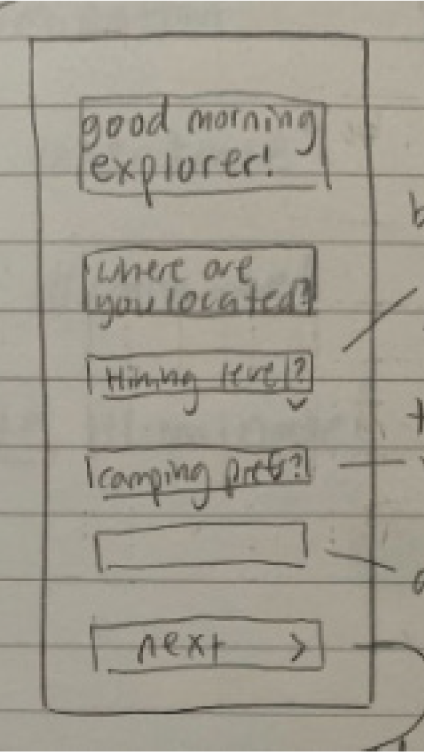 good morning
explorer!
where are
you located?
Hiking level?
camping pref?
next >